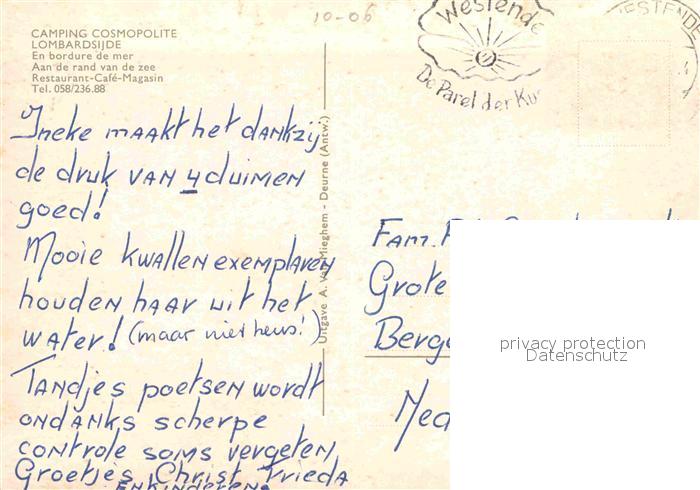 10-06
CAMPING COSMOPOLITE
LOMBARDSIJDE
En bordure de mer
Aan de rand van de zee
Restaurant-Café-Magasin
Tel. 058/236.88
Westende
De Parel der Ku
WESTENDE
Ineke maakt het dankzij
de druk van 4 duimen
goed!
Mooie kwallen exemplaren
houden haar uit het
water! (maar niet heus!)
Tandjes poetsen wordt
ondanks scherpe
controle soms vergeten,
Groetjes Christ Frieda
en kinderen
Uitgave A. Van Mieghem - Deurne (Antw.)
Fam.
Grote
Berg
Ned
privacy protection
Datenschutz